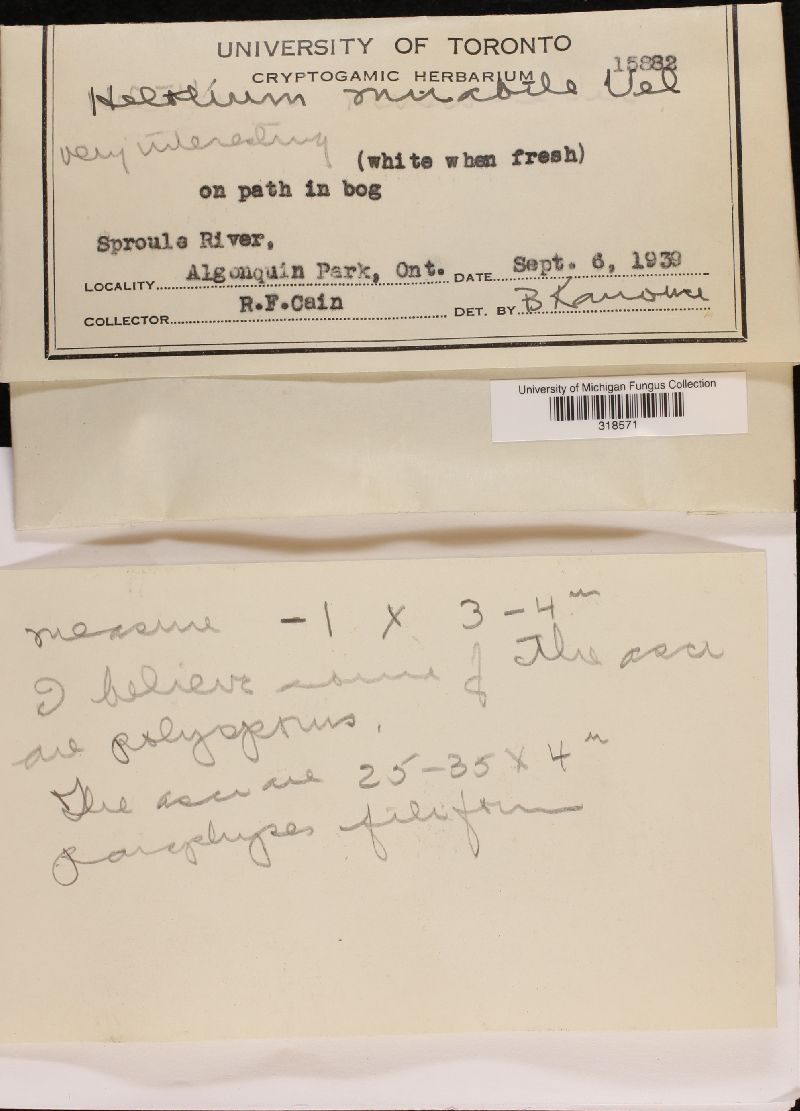 UNIVERSITY OF TORONTO
CRYPTOGAMIC HERBARIUM 15882
Helotium mirabile Vel
very interesting
(white when fresh)
on path in bog
Sproule River,
LOCALITY Algonquin Park, Ont. DATE Sept. 6, 1939
COLLECTOR R.F.Cain DET. BY B Kanouse
University of Michigan Fungus Collection
318571
measure -1 X 3-4 m
I believe some of the asci
are polysporus.
The asci are 25-35 X 4 m
paraphyses filiform